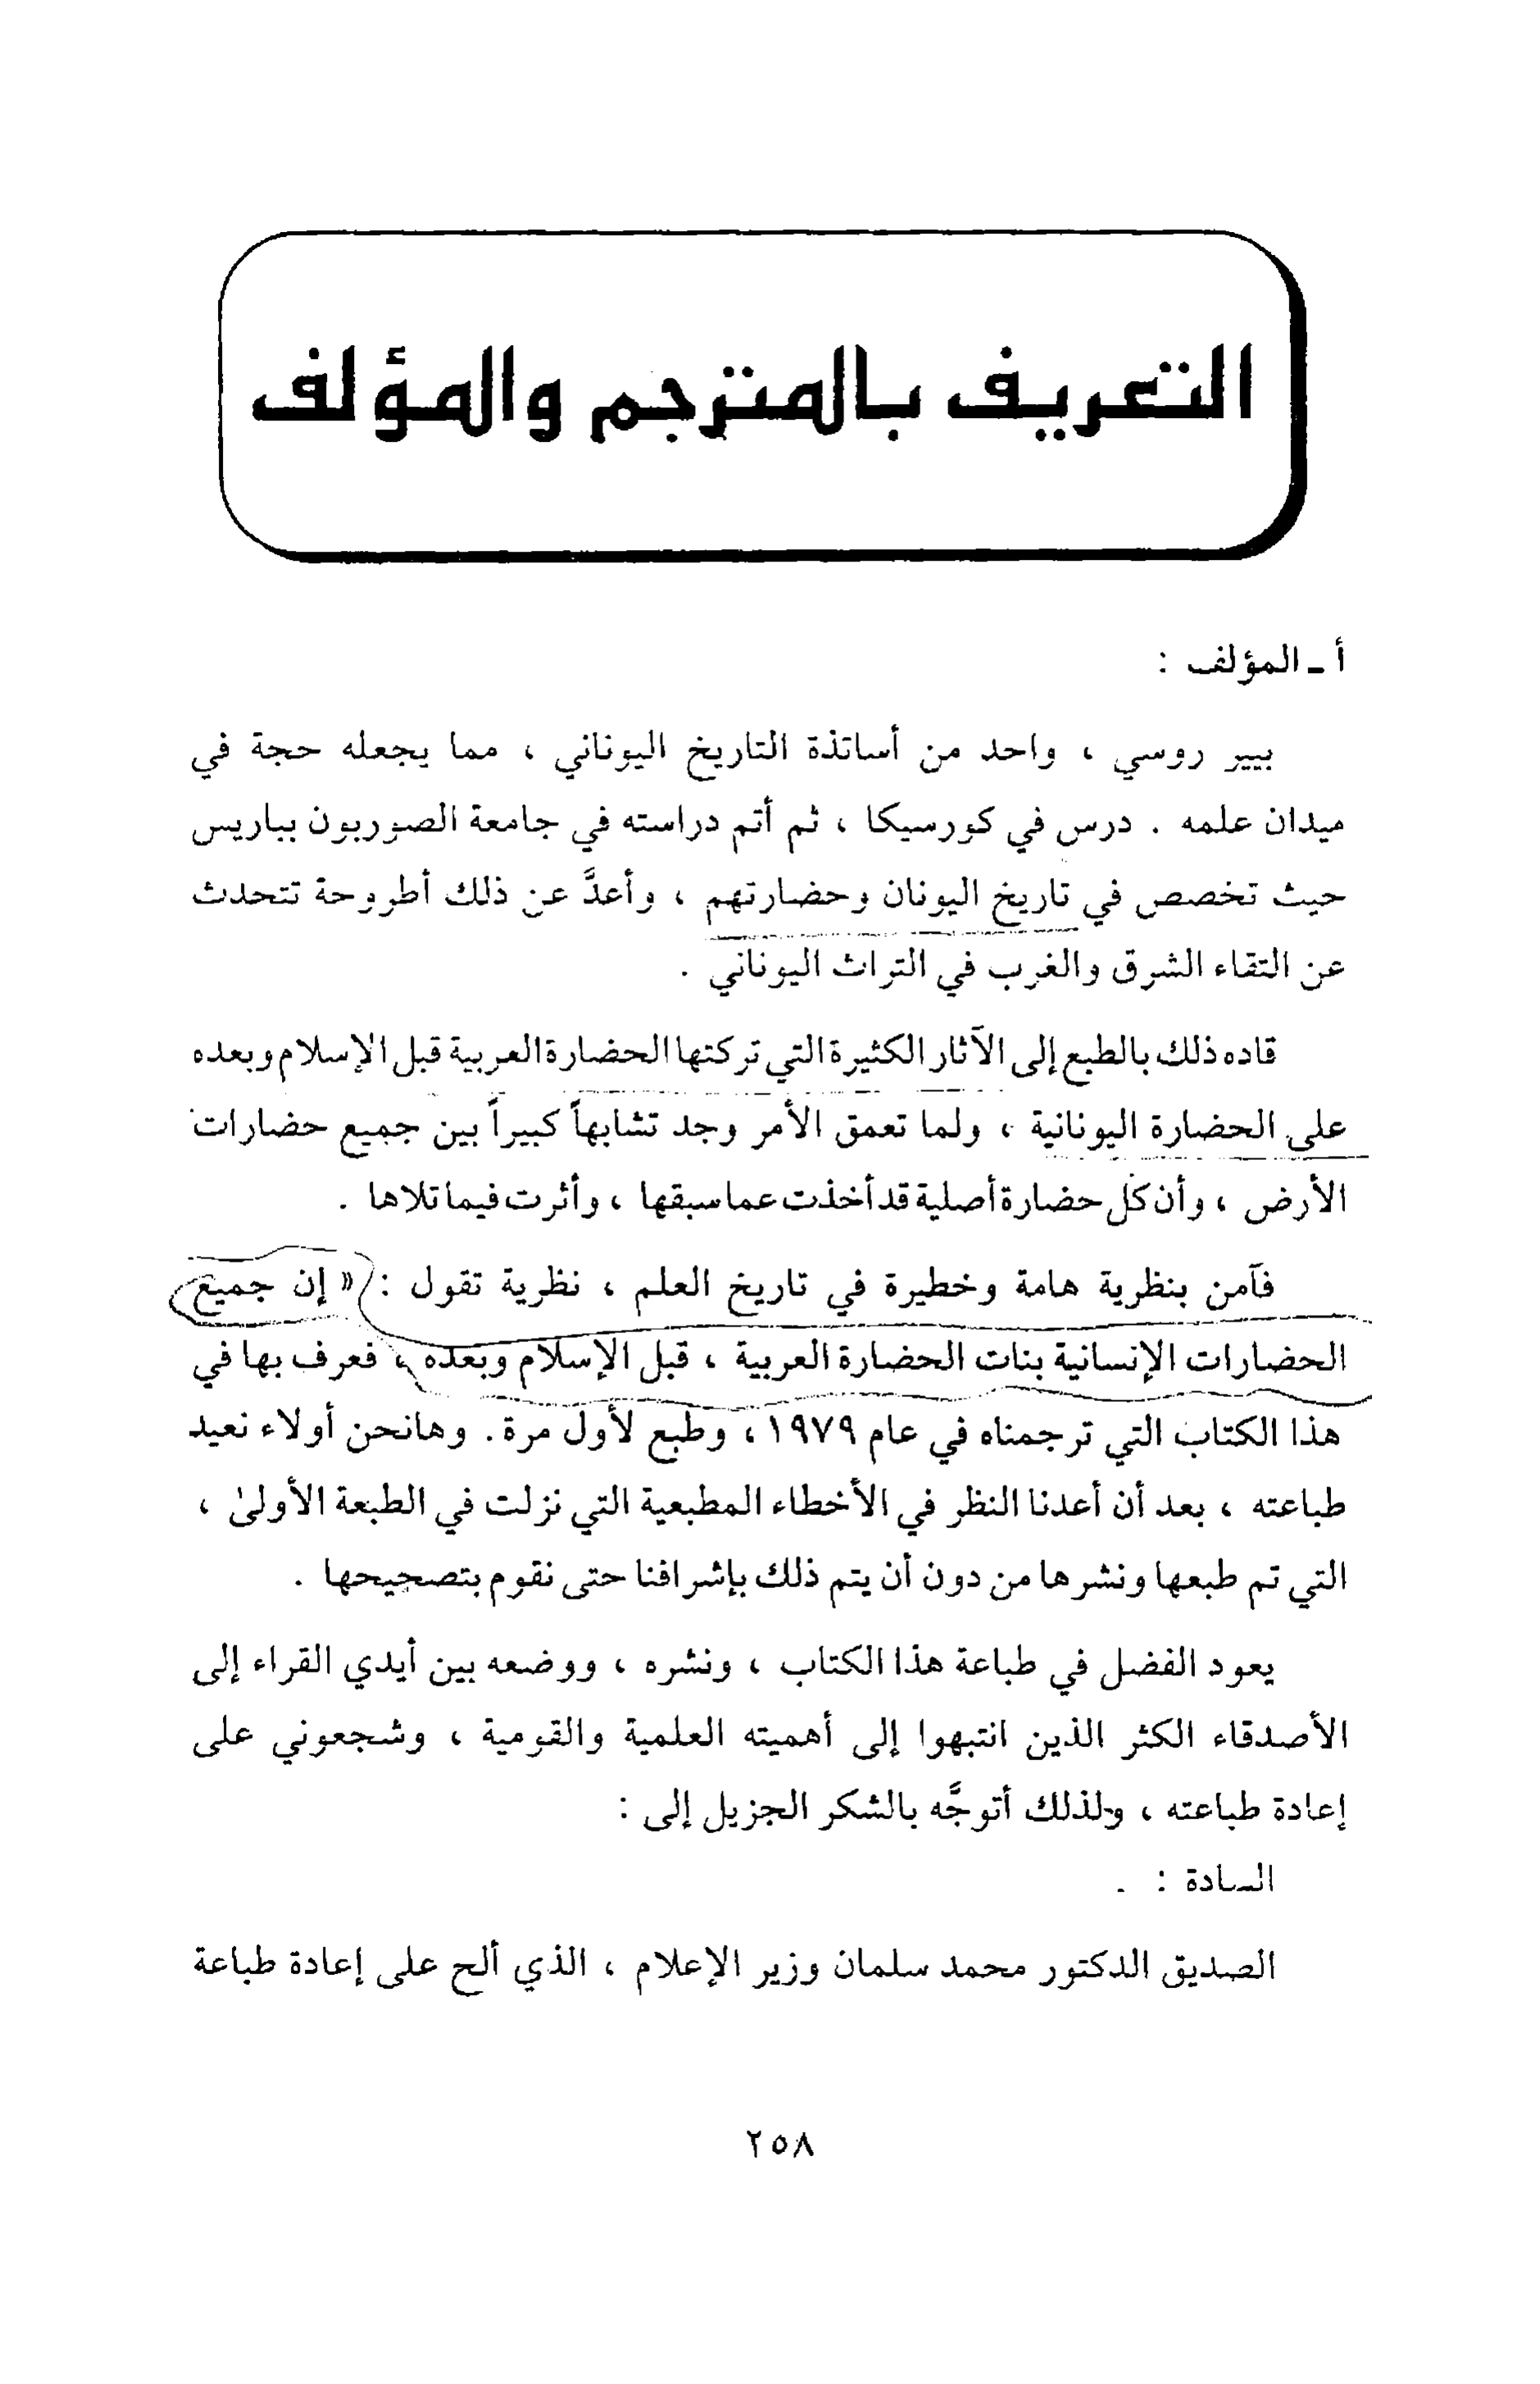 التعريف بالمترجم والمؤلف
أ ـ المؤلف :
بيير روسي ، واحد من أساتذة التاريخ اليوناني ، مما يجعله حجة في
ميدان علمه . درس في كورسيكا ، ثم أتم دراسته في جامعة الصوربون بباريس
حيث تخصص في تاريخ اليونان وحضارتهم ، وأعدَّ عن ذلك أطروحة تتحدث
عن التقاء الشرق والغرب في التراث اليوناني .
قاده ذلك بالطبع إلى الآثار الكثيرة التي تركتها الحضارة العربية قبل الإسلام وبعده
على الحضارة اليونانية ، ولما تعمق الأمر وجد تشابهاً كبيراً بين جميع حضارات
الأرض ، وأن كل حضارة أصلية قد أخذت عما سبقها ، وأثرت فيما تلاها .
فآمن بنظرية هامة وخطيرة في تاريخ العلم ، نظرية تقول : « إن جميع
الحضارات الإنسانية بنات الحضارة العربية ، قبل الإسلام وبعده ، فعرف بها في
هذا الكتاب التي ترجمناه في عام ١٩٧٩ ، وطبع لأول مرة . وهانحن أولاء نعيد
طباعته ، بعد أن أعدنا النظر في الأخطاء المطبعية التي نزلت في الطبعة الأولىٰ ،
التي تم طبعها ونشرها من دون أن يتم ذلك بإشرافنا حتى نقوم بتصحيحها .
يعود الفضل في طباعة هذا الكتاب ، ونشره ، ووضعه بين أيدي القراء إلى
الأصدقاء الكثر الذين انتبهوا إلى أهميته العلمية والقومية ، وشجعوني على
إعادة طباعته ، ولذلك أتوجَّه بالشكر الجزيل إلى :
السادة :
الصديق الدكتور محمد سلمان وزير الإعلام ، الذي ألح على إعادة طباعة
٢٥٨